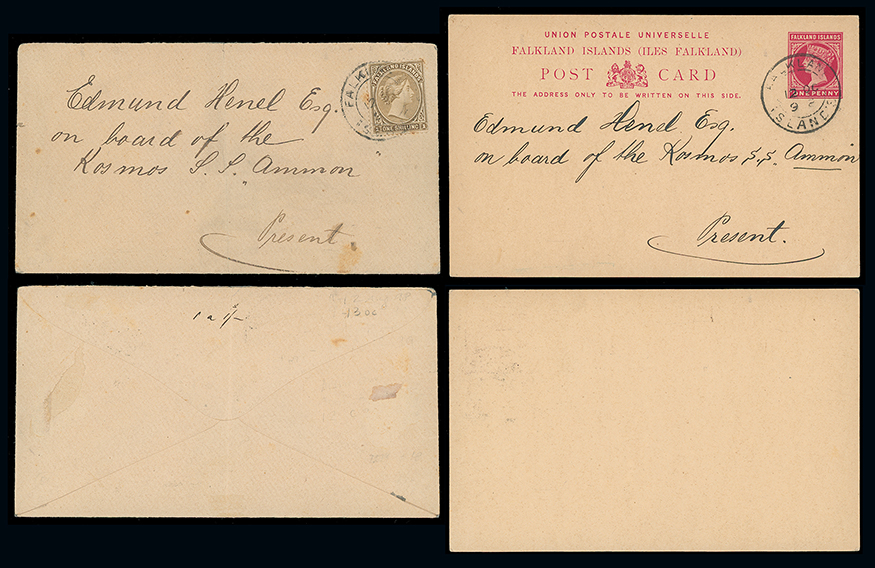 Edmund Henel Esq.
on board of the
Kosmos S. S. Ammon
Present.
FALKLAND ISLANDS
ONE SHILLING
UNION POSTALE UNIVERSELLE
FALKLAND ISLANDS (ILES FALKLAND)
POST CARD
THE ADDRESS ONLY TO BE WRITTEN ON THIS SIDE.
FALKLAND ISLANDS
ONE PENNY
FALKLAND
ISLANDS
Edmund Henel Esq.
on board of the Kosmos S. S. Ammon
Present.
1 a 1/-